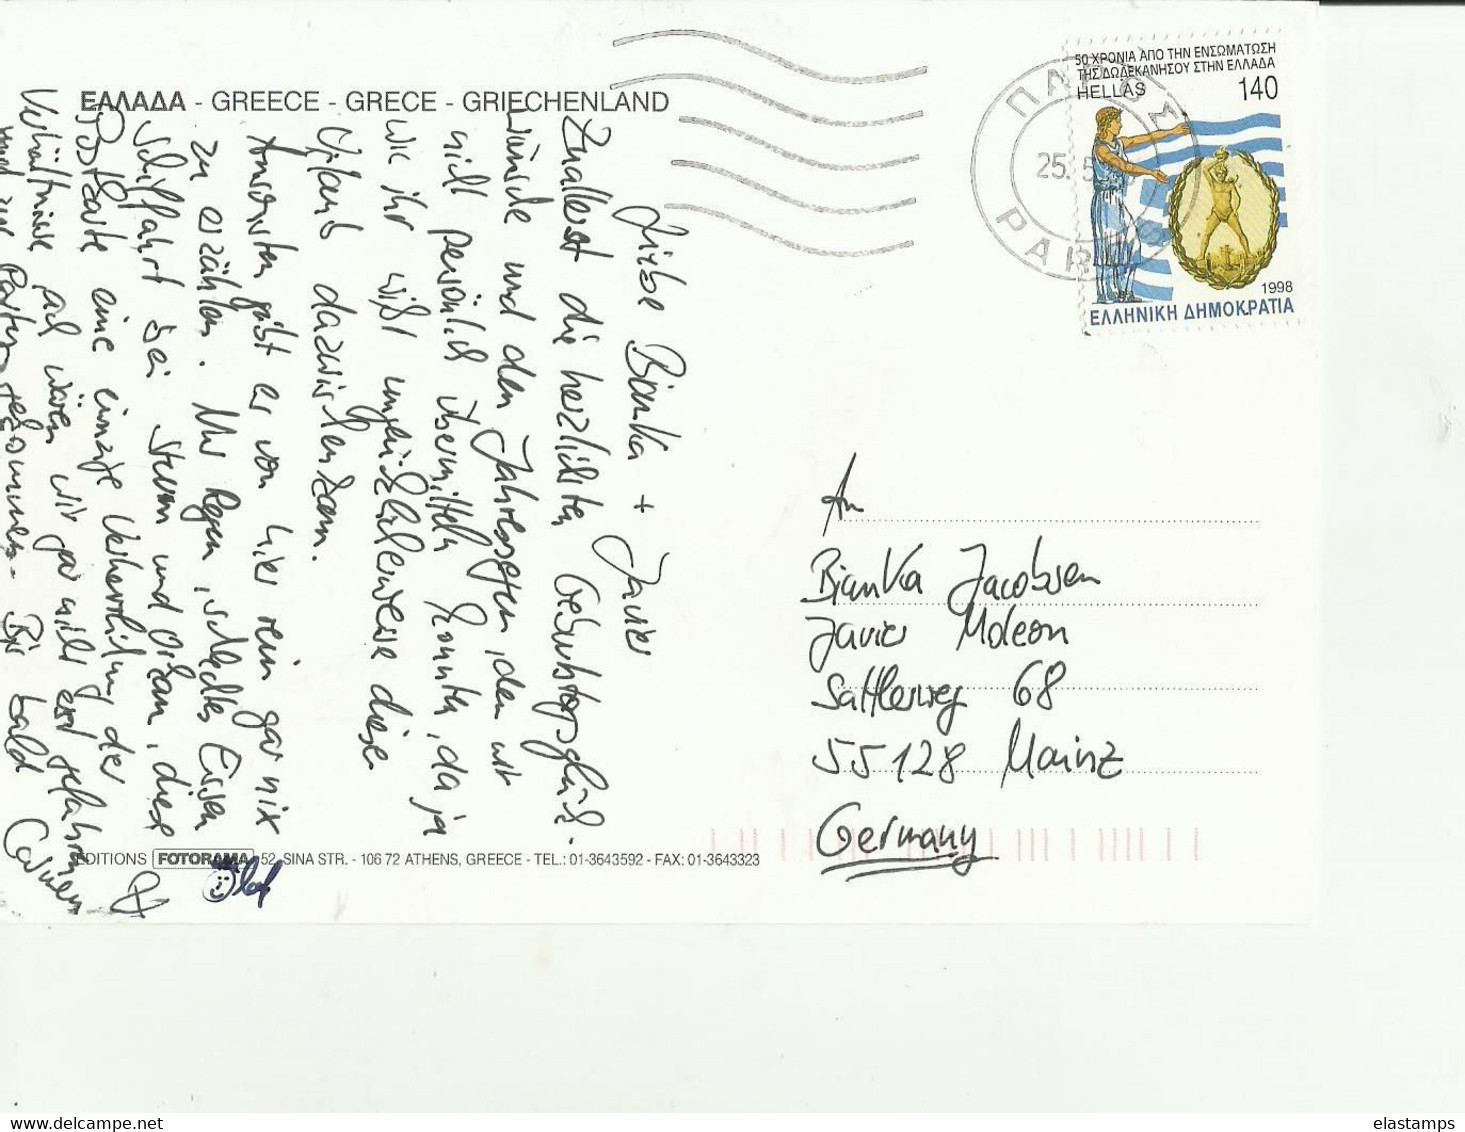 ΕΛΛΑΔΑ - GREECE - GRECE - GRIECHENLAND
Liebe Bianka + Javier
Zuallererst die herzlichsten Geburtstagsglück-
wünsche und den Jahresgruß, den wir
nicht persönlich übermitteln konnten, da ja
wie ihr wißt unglücklicherweise diese
Urlaub dazwischenkam.
Ansonsten gibt es von hier rein gar nix
zu erzählen. Nur Regen, schlechtes Essen
Schiffahrt bei Sturm und Orkan, diese
Postkarte eine einzige Verherrlichung der
Verhältnisse, ach wären wir gar nicht erst gefahren
und zur Party gekommen. Bis bald Carmen
&
Olaf
EDITIONS FOTORAMA 52, SINA STR. - 106 72 ATHENS, GREECE - TEL.: 01-3643592 - FAX: 01-3643323
50 ΧΡΟΝΙΑ ΑΠΟ ΤΗΝ ΕΝΣΩΜΑΤΩΣΗ
ΤΗΣ ΔΩΔΕΚΑΝΗΣΟΥ ΣΤΗΝ ΕΛΛΑΔΑ
HELLAS 140
1998
ΕΛΛΗΝΙΚΗ ΔΗΜΟΚΡΑΤΙΑ
ΠΑΡΟΣ
25. 5
PAROS
An
Bianka Jacobsen
Javier Moleon
Sattlerweg 68
55128 Mainz
Germany
elastamps